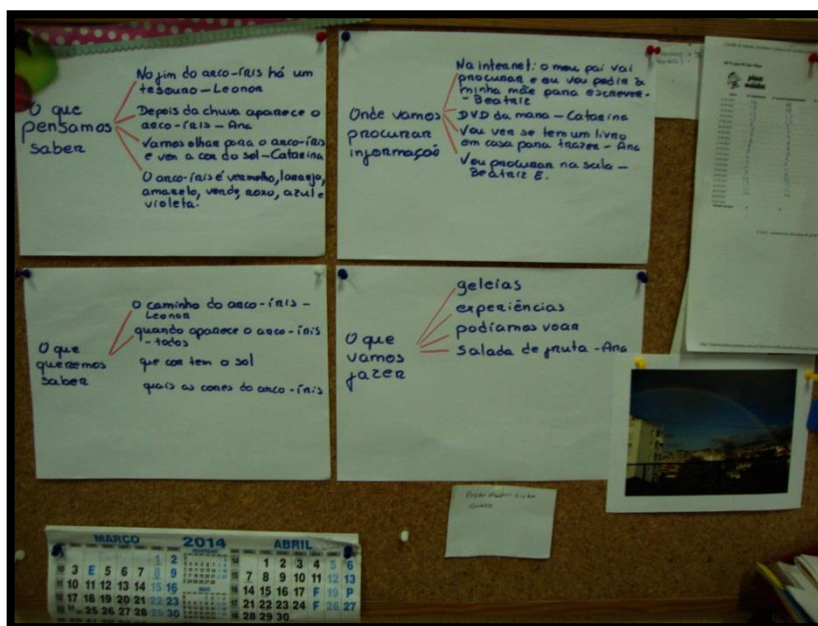 O que
pensamos
saber
No fim do arco-íris há um
tesouro - Leonor
Depois da chuva aparece o
arco-íris - Ana
Vamos olhar para o arco-íris
e ver a cor do sol - Catarina
O arco-íris é vermelho, laranja,
amarelo, verde, roxo, azul e
violeta.
Onde vamos
procurar
informação
Na internet: o meu pai vai
procurar e eu vou pedir à
minha mãe para escrever -
- Beatriz
DVD da mana - Catarina
Vou ver se tem um livro
em casa para trazer - Ana
Vou procurar na sala -
Beatriz E.
O que
queremos
saber
O caminho do arco-íris -
Leonor
quando aparece o arco-íris
- todos
que cor tem o sol
quais as cores do arco-íris
O que
vamos
fazer
geleias
experiências
podíamos voar
Salada de fruta - Ana
MARÇO 2014 ABRIL
1 2
3 E 5 6 7 8 9
10 11 12 13 14 15 16
17 18 19 20 21 22 23
25 26 27 28 29 30
1 2 3 4 5 6
7 8 9 10 11 12 13
14 15 16 17 F 19 P
21 22 23 24 F 26 27
28 29 30